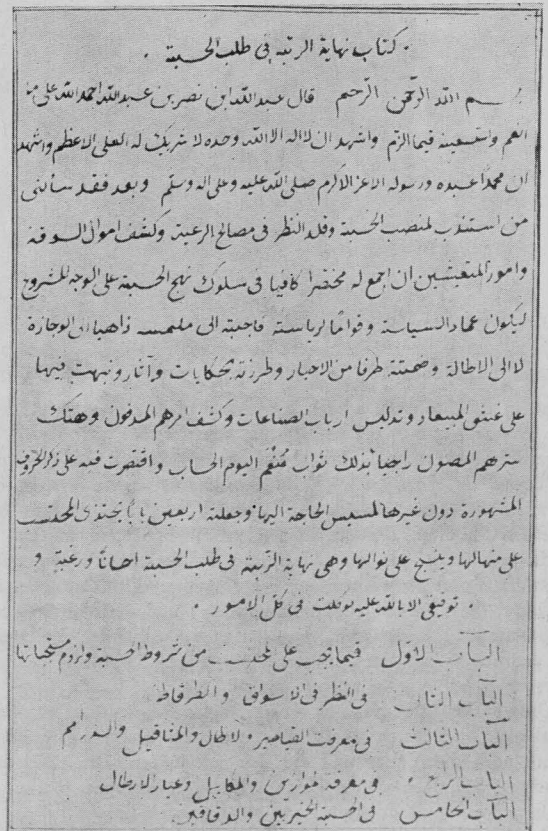 كتاب نهاية الرتبة في طلب الحسبة
بسم الله الرحمن الرحيم قال عبد الله ابن نصر بن عبد الله احمد الله على ما
انعم واستعينه فيما الزم واشهد ان لا اله الا الله وحده لا شريك له العلى الاعظم واشهد
ان محمدا عبده ورسوله الاعز الاكرم صلى الله عليه وعلى اله وسلم وبعد فقد سألنى
من استندب لمنصب الحسبة وقلد النظر فى مصالح الرعية وكشف اموال السوقة
وامور المتعيشين ان اجمع له مختصرا كافيا فى سلوك نهج الحسبة على الوجه المشروح
ليكون عمادا لسياسة وقواما لرياسة فاجبته الى ملتمسه ذاهبا الى الوجازة
لا الى الاطالة وضمنته طرفا من الاخبار وطرزته بحكايات وآثار ونبهت فيها
على غش المبيعات وتدليس ارباب الصناعات وكشف امرهم المدفون وهتك
سترهم المصون راجيا بذلك ثواب منعم اليوم الحساب واقتصرت فيه على ذكر الحروف
المشهورة دون غيرها لمسيس الحاجة اليها وجعلته اربعين بابا يحتذى المحتسب
على منهالها وينسج على نوالها وهى نهاية الرتبة فى طلب الحسبة ورغبة و
توفيقى الا بالله عليه توكلت فى كل الامور
الباب الاول فيما يجب على المحتسب من شروط الحسبة ولزوم مستحباتها
الباب الثانى فى النظر فى الاسواق والطرقات
الباب الثالث فى معرفت القناطير الارطال والمثاقيل والدراهم
الباب الرابع فى معرفة الموازين والمكاييل وعيار الارطال
الباب الخامس فى الحسبة الخبازين والدقاقين